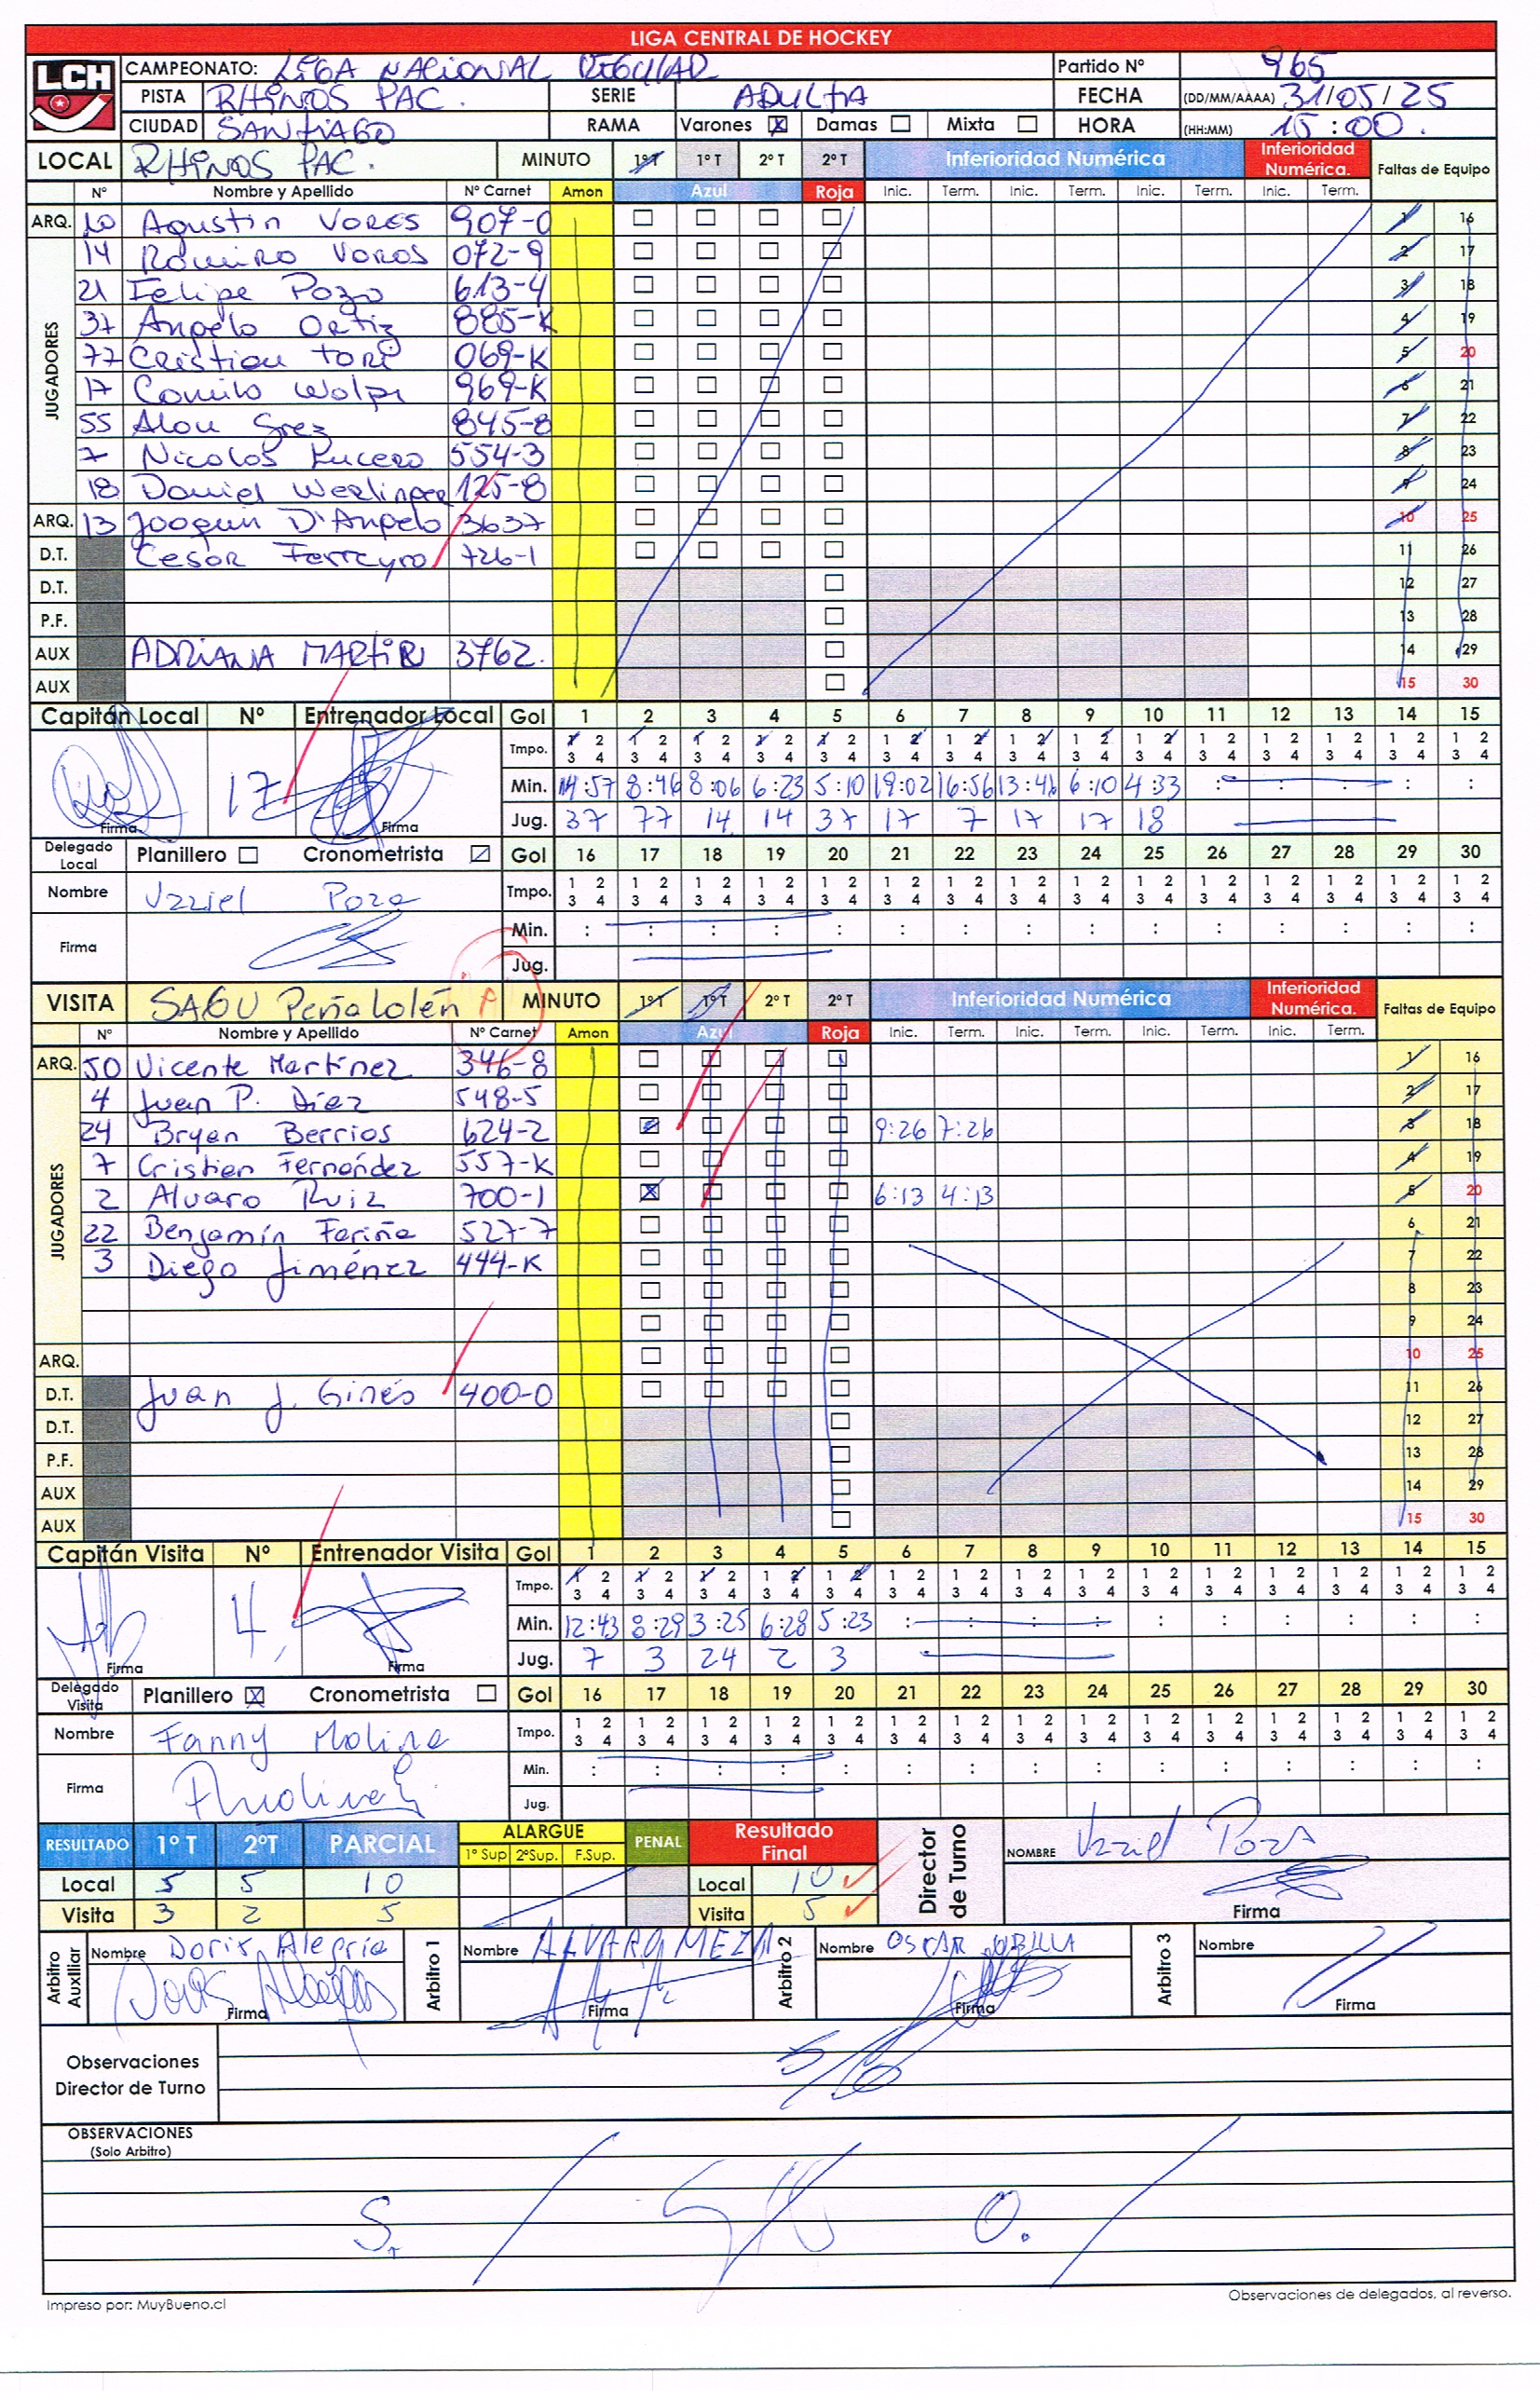 LIGA CENTRAL DE HOCKEY
LCH
CAMPEONATO: LIGA NACIONAL REGULAR Partido Nº 965
PISTA RHINOS PAC. SERIE ADULTA FECHA (DD/MM/AAAA) 31/05/25
CIUDAD SANTIAGO RAMA Varones X Damas Mixta HORA (HH:MM) 15:00.
LOCAL RHINOS PAC. MINUTO 1º T 1º T 2º T 2º T Inferioridad Numérica Inferioridad Numérica. Faltas de Equipo
Nº Nombre y Apellido Nº Carnet Amon Azul Roja Inic. Term. Inic. Term. Inic. Term. Inic. Term.
ARQ. 10 Agustin VORES 907-0 1 16
JUGADORES
14 Ramiro Voros 072-9 2 17
21 Felipe Pozo 613-4 3 18
37 Angelo Ortiz 885-K 4 19
77 Cristian Tori 069-K 5 20
17 Camilo Wolpi 969-K 6 21
55 Alan Grez 845-8 7 22
7 Nicolos Lucero 554-3 8 23
18 Daniel Werlinger 125-8 9 24
ARQ. 13 Joaquin D'Angelo 3637 10 25
D.T. Cesar Ferreyro 726-1 11 26
D.T. 12 27
P.F. 13 28
AUX ADRIANA MARTIN 3762. 14 29
AUX 15 30
Capitán Local Nº Entrenador Local Gol 1 2 3 4 5 6 7 8 9 10 11 12 13 14 15
Tmpo. 1 2 1 2 1 2 1 2 1 2 1 2 1 2 1 2 1 2 1 2 1 2 1 2 1 2 1 2 1 2
3 4 3 4 3 4 3 4 3 4 3 4 3 4 3 4 3 4 3 4 3 4 3 4 3 4 3 4 3 4
17 Min. 14:57 8:46 8:06 6:23 5:10 19:02 16:56 13:41 6:10 4:33 : : : : :
Firma Firma Jug. 37 77 14 14 37 17 7 17 17 18
Delegado Local Planillero Cronometrista Gol 16 17 18 19 20 21 22 23 24 25 26 27 28 29 30
Nombre Uzziel Poza Tmpo. 1 2 1 2 1 2 1 2 1 2 1 2 1 2 1 2 1 2 1 2 1 2 1 2 1 2 1 2 1 2
3 4 3 4 3 4 3 4 3 4 3 4 3 4 3 4 3 4 3 4 3 4 3 4 3 4 3 4 3 4
Firma Min. : : : : : : : : : : : : : : :
Jug.
VISITA SAGU Peñalolén A MINUTO 1º T 1º T 2º T 2º T Inferioridad Numérica Inferioridad Numérica. Faltas de Equipo
Nº Nombre y Apellido Nº Carnet Amon Azul Roja Inic. Term. Inic. Term. Inic. Term. Inic. Term.
ARQ. 50 Vicente Martínez 346-8 1 16
JUGADORES
4 Juan P. Díez 548-5 2 17
24 Bryan Berrios 624-2 9:26 7:26 3 18
7 Cristian Fernández 557-K 4 19
2 Alvaro Ruiz 700-1 X 6:13 4:13 5 20
22 Benjamín Fariña 527-7 6 21
3 Diego Jiménez 444-K 7 22
8 23
9 24
ARQ. 10 25
D.T. Juan J. Ginés 400-0 11 26
D.T. 12 27
P.F. 13 28
AUX 14 29
AUX 15 30
Capitán Visita Nº Entrenador Visita Gol 1 2 3 4 5 6 7 8 9 10 11 12 13 14 15
Tmpo. 1 2 1 2 1 2 1 2 1 2 1 2 1 2 1 2 1 2 1 2 1 2 1 2 1 2 1 2 1 2
3 4 3 4 3 4 3 4 3 4 3 4 3 4 3 4 3 4 3 4 3 4 3 4 3 4 3 4 3 4
4 Min. 12:43 8:29 3:25 6:28 5:23 : : : : : : : : : :
Firma Firma Jug. 7 3 24 2 3
Delegado Visita Planillero X Cronometrista Gol 16 17 18 19 20 21 22 23 24 25 26 27 28 29 30
Nombre Fanny Molina Tmpo. 1 2 1 2 1 2 1 2 1 2 1 2 1 2 1 2 1 2 1 2 1 2 1 2 1 2 1 2 1 2
3 4 3 4 3 4 3 4 3 4 3 4 3 4 3 4 3 4 3 4 3 4 3 4 3 4 3 4 3 4
Firma Min. : : : : : : : : : : : : : : :
Jug.
RESULTADO 1º T 2ºT PARCIAL ALARGUE 1º Sup 2ºSup. F.Sup. PENAL Resultado Final Director de Turno NOMBRE Uzziel Poza
Local 5 5 10 Local 10
Visita 3 2 5 Visita 5 Firma
Arbitro Auxiliar Nombre Doris Alegria Arbitro 1 Nombre ALVARO MEZA Arbitro 2 Nombre OSCAR Arbitro 3 Nombre
Firma Firma Firma Firma
Observaciones
Director de Turno
OBSERVACIONES
(Solo Arbitro)
S. O.
Impreso por: MuyBueno.cl Observaciones de delegados, al reverso.